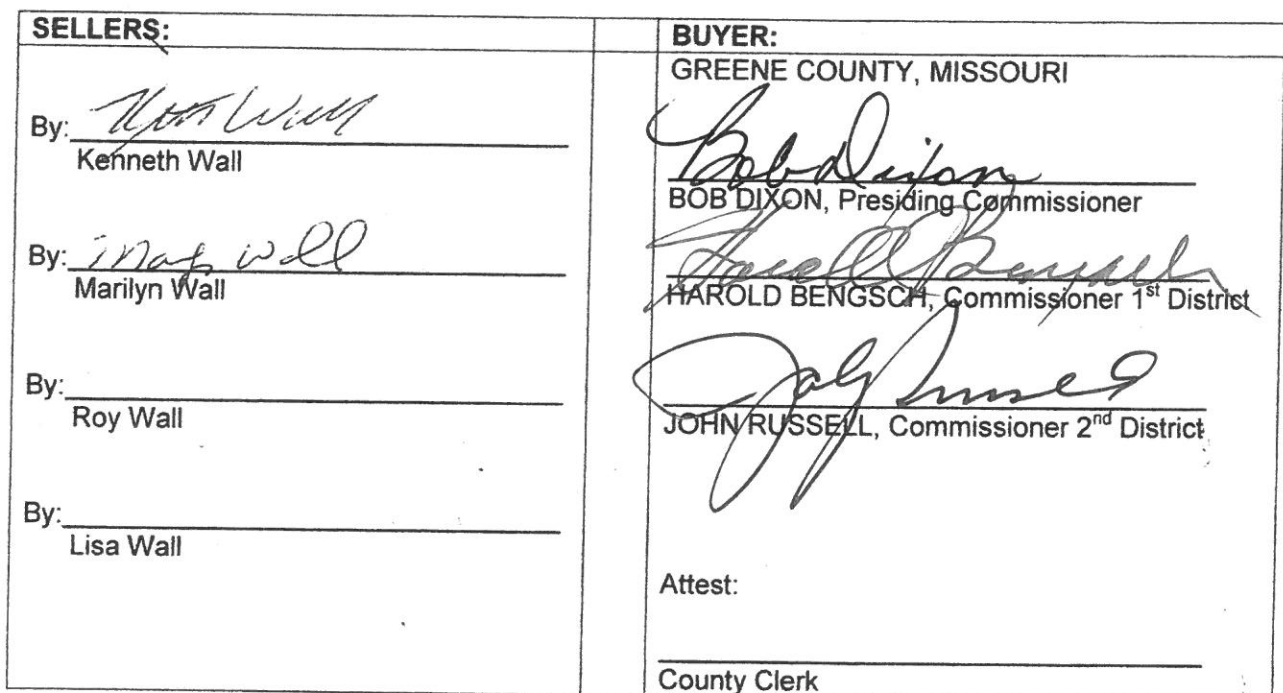 SELLERS:
By: Kenneth Wall
Kenneth Wall
By: Marilyn Wall
Marilyn Wall
By:
Roy Wall
By:
Lisa Wall
BUYER:
GREENE COUNTY, MISSOURI
Bob Dixon
BOB DIXON, Presiding Commissioner
Harold Bengsch
HAROLD BENGSCH, Commissioner 1st District
John Russell
JOHN RUSSELL, Commissioner 2nd District
Attest:
County Clerk